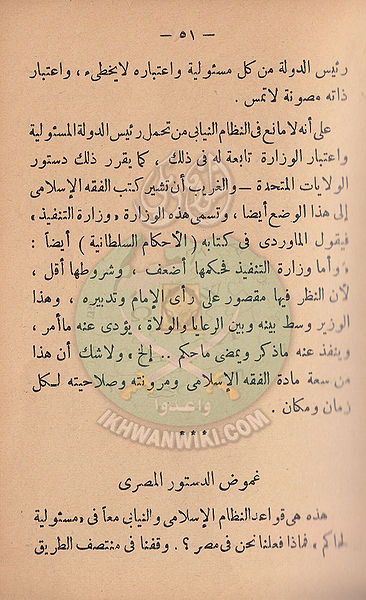 — ٥١ —
رئيس الدولة من كل مسئولية واعتباره لايخطىء ، واعتبار
ذاته مصونة لاتمس .
على أنه لامانع فى النظام النيابى من تحمل رئيس الدولة المسئولية
واعتبار الوزارة تابعة له فى ذلك ، كما يقرر ذلك دستور
الولايات المتحدة — والغريب أن تشير كتب الفقه الإسلامى
إلى هذا الوضع أيضا ، وتسمى هذه الوزارة « وزارة التنفيذ »
فيقول الماوردى فى كتابه ( الأحكام السلطانية ) أيضاً :
« وأما وزارة التنفيذ فحكمها أضعف ، وشروطها أقل ،
لأن النظر فيها مقصور على رأى الإمام وتدبيره ، وهذا
الوزير وسط بينه وبين الرعايا والولاة ، يؤدى عنه ماأمر ،
وينفذ عنه ماذكر ويمضى ماحكم .. إلخ ، ولاشك أن هذا
من سعة مادة الفقه الإسلامى ومرونته وصلاحيته لكل
زمان ومكان .
***
غموض الدستور المصرى
هذه هى قواعد النظام الإسلامى والنيابى معاً فى « مسئولية
الحاكم » فماذا فعلنا نحن فى مصر ؟ . وقفنا فى منتصف الطريق
وأعدوا
IKHWANWIKI.COM